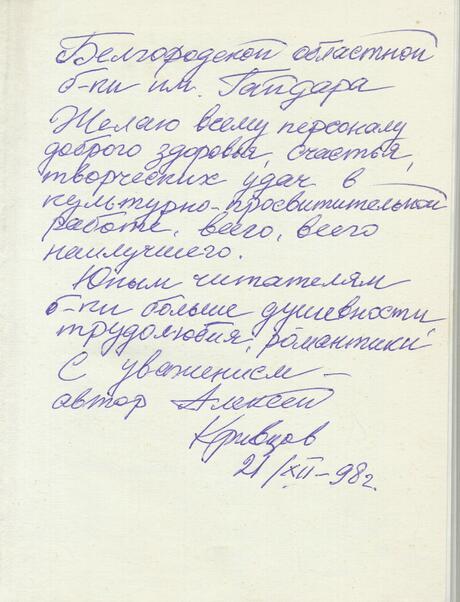 Белгородской областной
б-ки им. Гайдара
Желаю всему персоналу
доброго здоровья, счастья,
творческих удач в
культурно-просвитительной
работе, всего, всего
наилучшего.
Юным читателям
б-ки больше душевности,
трудолюбия, романтики
С уважением –
автор Алексей
Кривцов
21/XII–98г.